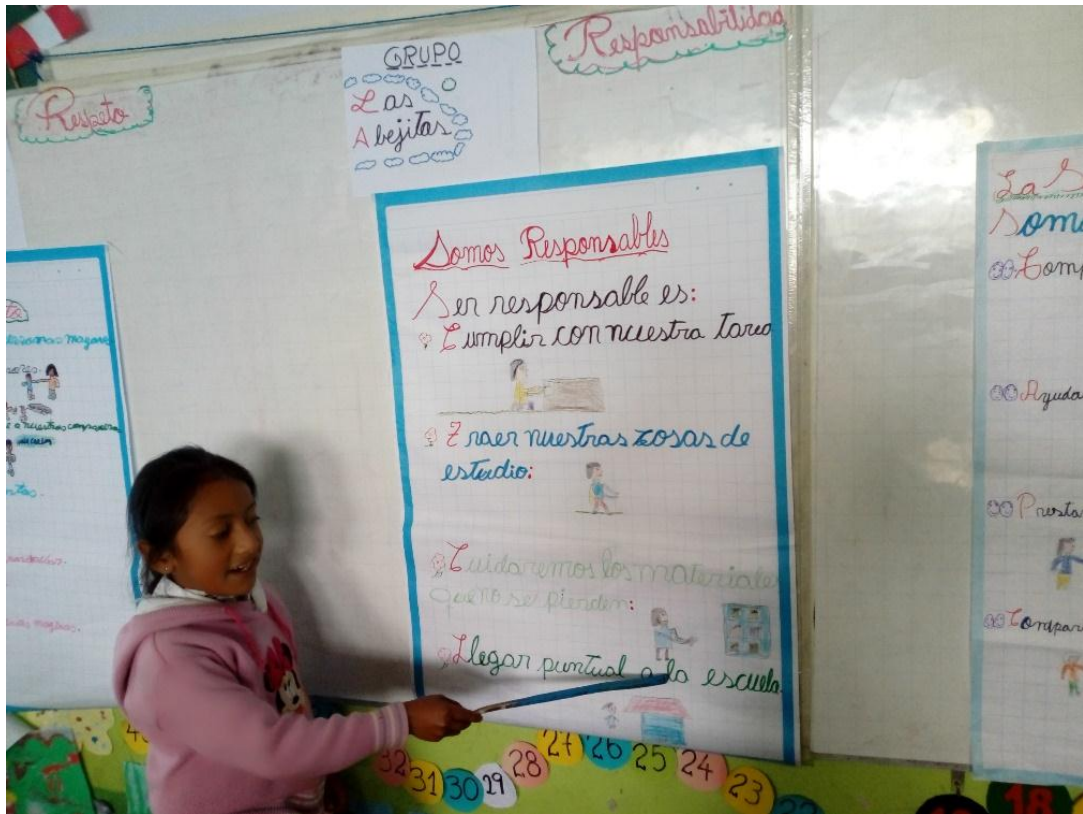 Respeto
GRUPO
Las
Abejitas
Responsabilidad
Somos Responsables
Ser responsable es:
Cumplir con nuestra tarea
Traer nuestras cosas de
estudio:
Cuidaremos los materiales
que no se pierden:
Llegar puntual a la escuela
La S
Som
Comp
Ayuda
Presta
Compar
32 31 30 29 28 27 26 25 24 23 22
18